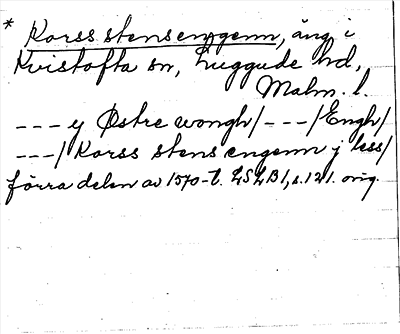 * Korss stens engenn, äng i
Kvistofta sn, Luggude hd,
Malm. l.
--- y Østre wongh/ ---/Engh/
---/ Korss stens engenn j less/
förra delen av 1570-t. LSLB1, s. 121. orig.